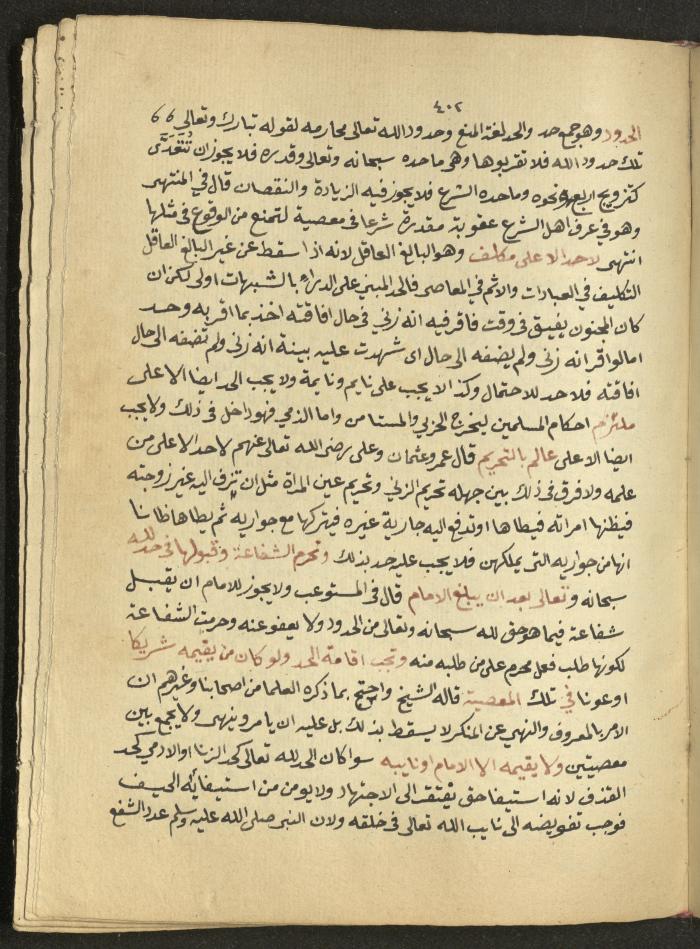 ٤٠٢
الحدود وهو جمع حد والحد لغة المنع وحدود الله تعالى محارمه لقوله تبارك وتعالى
تلك حدود الله فلا تقربوها وهي ما حده سبحانه وتعالى وقدره فلا يجوز ان تتعدى
كتزويج اربع ونحوه وما حده الشرع فلا يجوز فيه الزيادة والنقصان قال في المنتهى
وهو في عرف اهل الشرع عقوبة مقدرة شرعا في معصية لتمنع من الوقوع في مثلها
انتهى لا حد الا على مكلف وهو البالغ العاقل لانه اذا سقط عن غير البالغ العاقل
التكليف في العبادات والاثم في المعاصي فالحد المبني على الدراء بالشبهات اولى لكن ان
كان المجنون يفيق في وقت فاقر فيه انه زنى في حال افاقته اخذ بما اقر به وحد
اما لو اقر انه زنى ولم يضفه الى حال اى شهدت عليه بينة انه زنى ولم تضفه الى حال
افاقته فلا حد للاحتمال وكذا لا يجب على نايم ونايمة ولا يجب الحد ايضا الا على
ملتزم احكام المسلمين ليخرج الحربي والمستامن واما الذمي فهو داخل في ذلك ولا يجب
ايضا الا على عالم بالتحريم قال عمر وعثمان وعلى رضى الله تعالى عنهم لا حد الا على من
علمه ولا فرق في ذلك بين جهله تحريم الزنى وتحريم عين المراة مثل ان تزف اليه غير زوجته
فيظنها امراته فيطاها او تدفع اليه جارية غيره فيتركها مع جواريه ثم يطاها ظانا
انها من جواريه التى يملكهن فلا يجب عليه حد بذلك وتحرم الشفاعة وقبولها في حد لله
سبحانه وتعالى بعد ان يبلغ الامام قال في المستوعب ولا يجوز للامام ان يقبل
شفاعة فيما هو حق لله سبحانه وتعالى من الحدود ولا يعفو عنه وحرمت الشفاعة
لكونها طلب فعل محرم على من طلبه منه وتجب اقامة الحد ولو كان من يقيمه شريكا
او عونا في تلك المعصية قاله الشيخ واحتج بما ذكره العلما من اصحابنا وغيرهم ان
الامر بالمعروف والنهي عن المنكر لا يسقط بذلك بل عليه ان يامر وينهى ولا يجمع بين
معصيتين ولا يقيمه الا الامام او نايبه سوا كان الحد لله تعالى كحد الزنا او الادمي كحد
القذف لانه استيفا حق تفتقر الى الاجتهاد ولا يومن من استيفائه الحيف
فوجب تفويضه الى نايب الله تعالى في خلقه ولان النبى صلى الله عليه وسلم